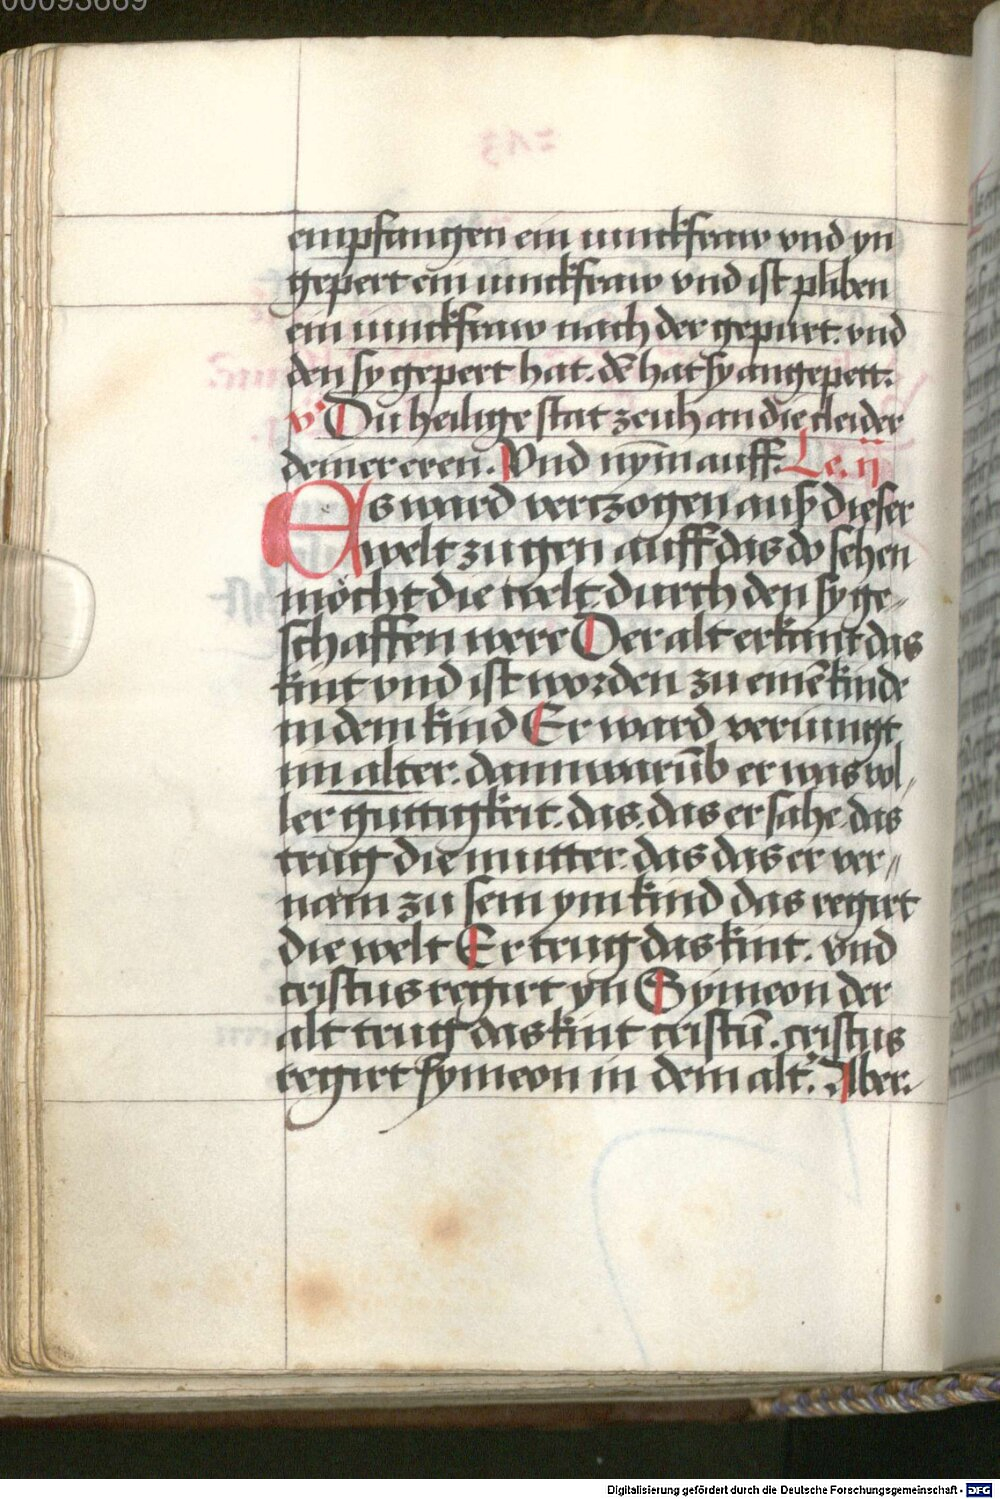 00093669
empfangen ein iunckfraw vnd yn
gepert ein iunckfraw vnd ist pliben
ein iunckfraw nach der gepurt. vnd
den sy gepert hat. dē hat sy angepett.
v' Du heilige stat zeuh an die cleider
deiner eren. Vnd nȳm auff. Le. ij
Es ward vertzogen auß dieser
welt zu gen auff das do sehen
möcht die welt. durch den sy ge-
schaffen were Der alt erkant das
kint vnd ist worden zu einē kinde
in dem kind Er ward veriungt
im alter. dann warūb er was vol-
ler guttigkeit. das, das er sahe. das
trug die mutter. das das er ver-
nam zu sein ym kind das regirt
die welt Er trug das kint. vnd
cristus regirt yn Symeon der
alt trug das kint cristū. cristus
regirt symeon in dem alt'. Aber.
Digitalisierung gefördert durch die Deutsche Forschungsgemeinschaft - DFG